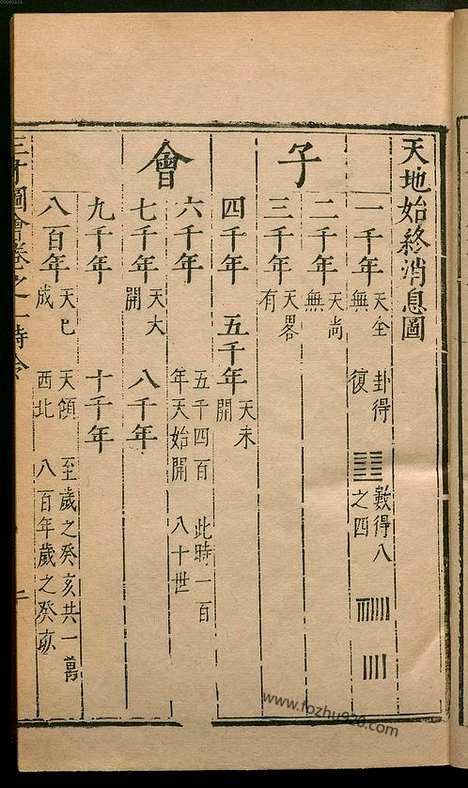 天地始終消息圖
子會
一千年 天全無 卦得復 數得八之四
二千年 天尚無
三千年 天畧有
四千年 五千年 天未開
六千年 五千四百年天始開 此時一百八十世
七千年 天大開 八千年
九千年 十千年
八百年 天已成 天傾西北 至歲之癸亥共一萬八百年歲之癸亥
三才圖會卷之一時令
www.fozhu920.com